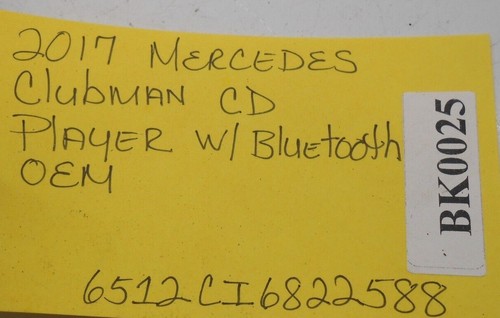 2017 MERCEDES
ClubMAN CD
PlAYER W/ Bluetooth
OEM
BK0025
6512CI6822588